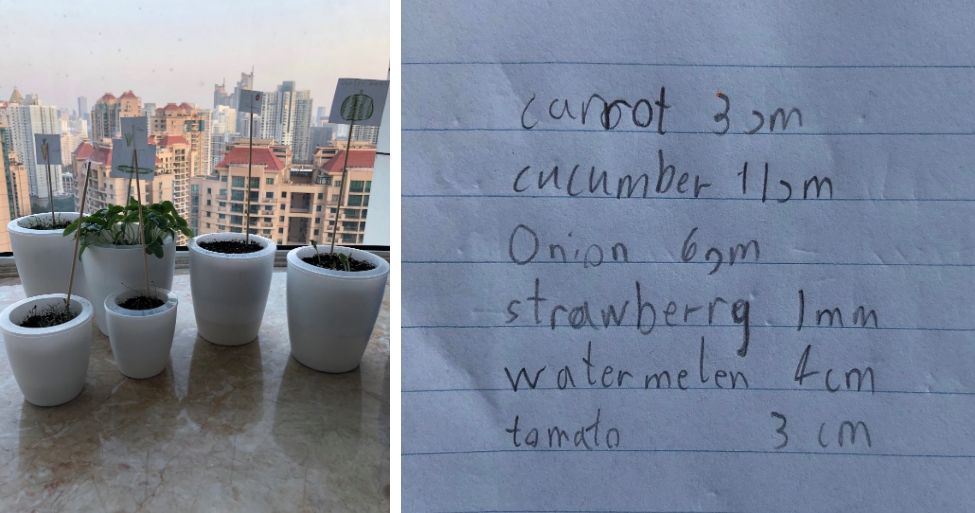 carrot 3cm
cucumber 11cm
Onion 6cm
strawberry 1mm
watermelen 4cm
tomato 3 cm